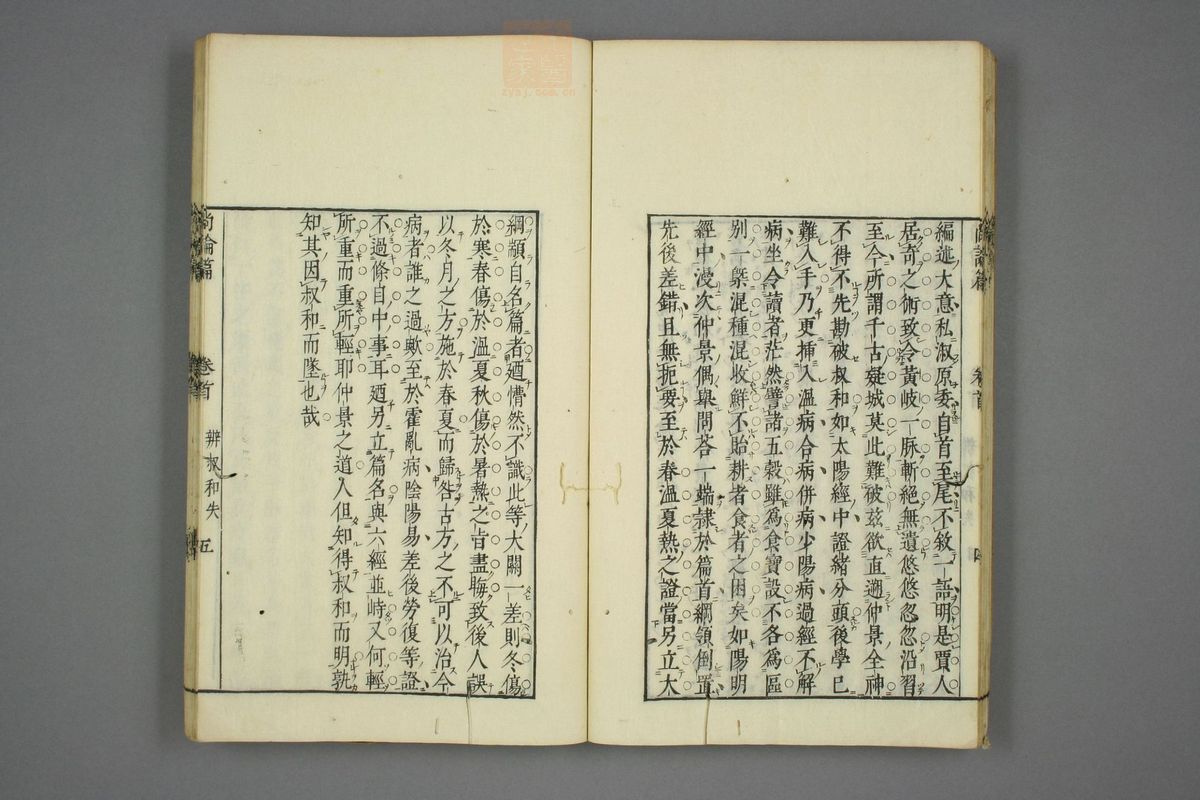 尚論篇
卷首
編述大意私淑原委自首至尾不敘一語明是賈人
居奇之術致令黃岐一脉斬絕無遺悠悠忽忽沿習
至今所謂千古疑城莫此難破兹欲直遡仲景全神
不得不先勘破叔和如太陽經中證緒分頭後學已
難入手乃更挿入溫病合病併病少陽病過經不解
病坐令讀者茫然譬諸五穀雖為食寶設不各為區
別一槩混種混收鮮不貽耕者食者之困矣如陽明
經中漫次仲景偶舉問荅一端隷於篇首綱領倒置
先後差錯且無扼要至於春溫夏熱之證當另立大
綱顓自名篇者廼懵然不識此等大關一差則冬傷
於寒春傷於溫夏秋傷於暑熱之旨盡晦致後人誤
以冬月之方施於春夏而歸咎古方之不可以治今
病者誰之過歟至於霍亂病陰陽易差後勞復等證
不過條自中事耳廼另立篇名與六經並峙又何輕
所重而重所輕耶仲景之道人但知得叔和而明孰
知其因叔和而墜也哉
尚論篇
卷首
辨叔和失
五
zysj.com.cn